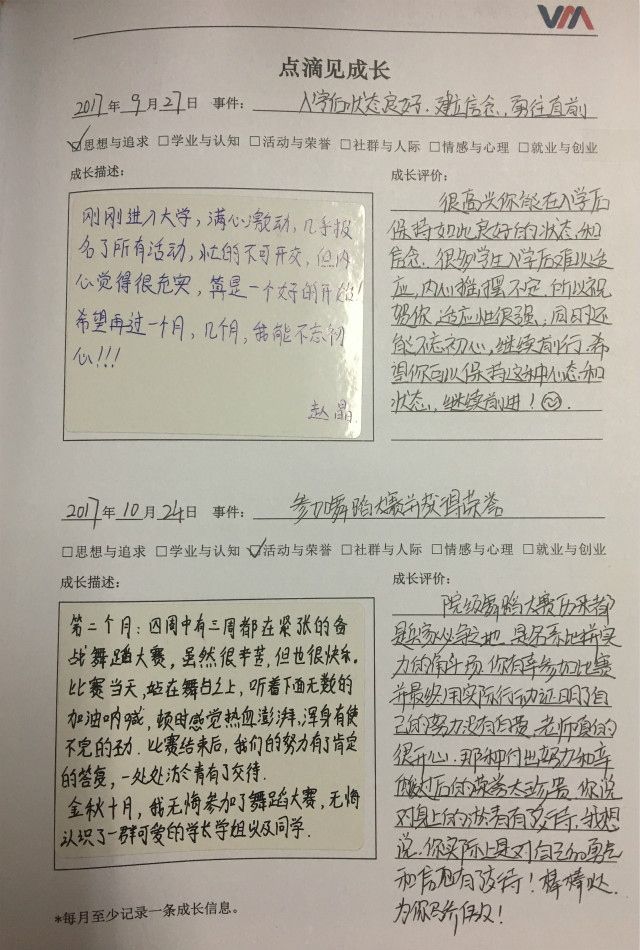 VM
点滴见成长
2017年9月27日 事件: 入学后状态良好.建立信念,勇往直前
☑思想与追求 □学业与认知 □活动与荣誉 □社群与人际 □情感与心理 □就业与创业
成长描述:
刚刚进入大学,满心激动,几乎报
名了所有活动,忙的不可开交,但内
心觉得很充实,算是一个好的开始!
希望再过一个月,几个月,我能不忘初
心!!!
赵晶
成长评价:
很高兴你能在入学后
保持如此良好的状态和
信念.很多学生入学后难以适
应,内心摇摆不定.所以祝
贺你,适应性很强;同时还
能不忘初心,继续前行.希
望你可以保持这种心态和
状态,继续前进!
2017年10月24日 事件: 参加舞蹈大赛并获得荣誉
□思想与追求 □学业与认知 ☑活动与荣誉 □社群与人际 □情感与心理 □就业与创业
成长描述:
第二个月:四周中有三周都在紧张的备
战舞蹈大赛,虽然很辛苦,但也很快乐.
比赛当天,站在舞台之上,听着下面无数的
加油呐喊,顿时感觉热血澎湃,浑身有使
不完的劲.比赛结束后,我们的努力有了肯定
的答复,一处处淤青有了交待.
金秋十月,我无悔参加了舞蹈大赛,无悔
认识了一群可爱的学长学姐以及同学.
成长评价:
院级舞蹈大赛历来都
是兵家必争之地,是各系比拼实
力的角斗场.你有幸参加比赛
并最终用实际行动证明了自
己的努力没有白费.老师真的
很开心.那种付出努力和辛
酸过后的荣誉太珍贵.你说
对身上的淤青有交待,我想
说,你实际上是对自己的勇气
和信念有交待!棒棒哒.
为你骄傲!
*每月至少记录一条成长信息。